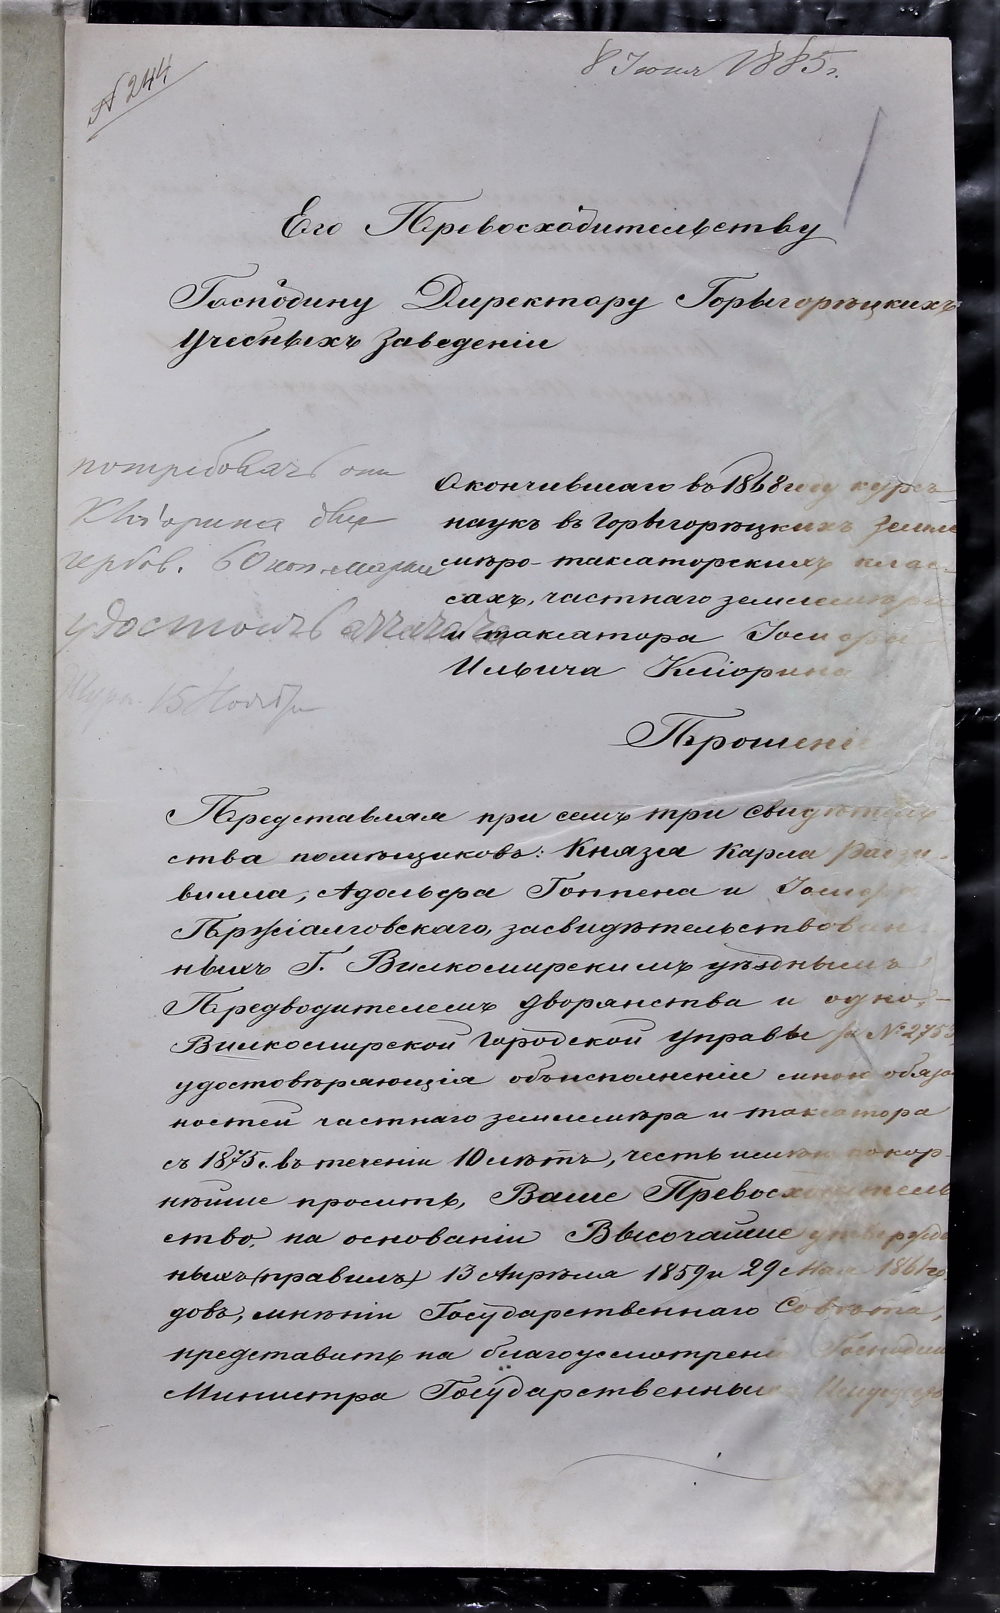 № 244
8 Июня 1885 г.
Его Превосходительству
Господину Директору Горыгорѣцкихъ
Учебныхъ Заведеніи
потребовать отъ
Кліорина двѣ
гербов. 60 коп. марки
удостоить
15 Ноября
Окончившаго въ 1868 году курсъ
наукъ въ Горыгорѣцкихъ Земле
мѣро-таксаторскихъ клас-
сахъ, частнаго землемѣра
и таксатора Іосифа
Ильича Кліорина
Прошеніе
Представляя при семъ три свидѣтель
ства помѣщиковъ: Князя Карла Радзи-
вилла, Адольфа Гоппена и Іосифа
Пржіалговскаго, засвидѣтельствован
ныхъ Г. Вилкомирскимъ уѣзднымъ
Предводителемъ дворянства и одно,-
Вилкомирской Городской Управы за № 2753
удостовѣряющія объ исполненіи мною обяза
ностей частнаго землемѣра и таксатора
съ 1875 г. въ теченіи 10 лѣтъ, честь имѣю покор-
нѣйше просить, Ваше Превосходитель
ство, на основаніи Высочайше утвержде
ныхъ (правилъ) 13 Апрѣля 1859 и 29 Мая 1861 го
довъ, мнѣніи Государственнаго Совѣта,
представить на благоусмотреніе Господина
Министра Государственныхъ Имуществ